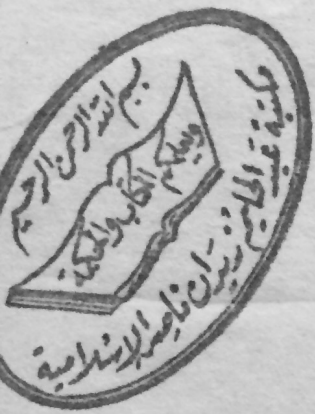 بسم الله الرحمن الرحيم
ويعلمكم الكتاب والحكمة
مكتبة عبد الحليم زيدان ناصر الإسلامية